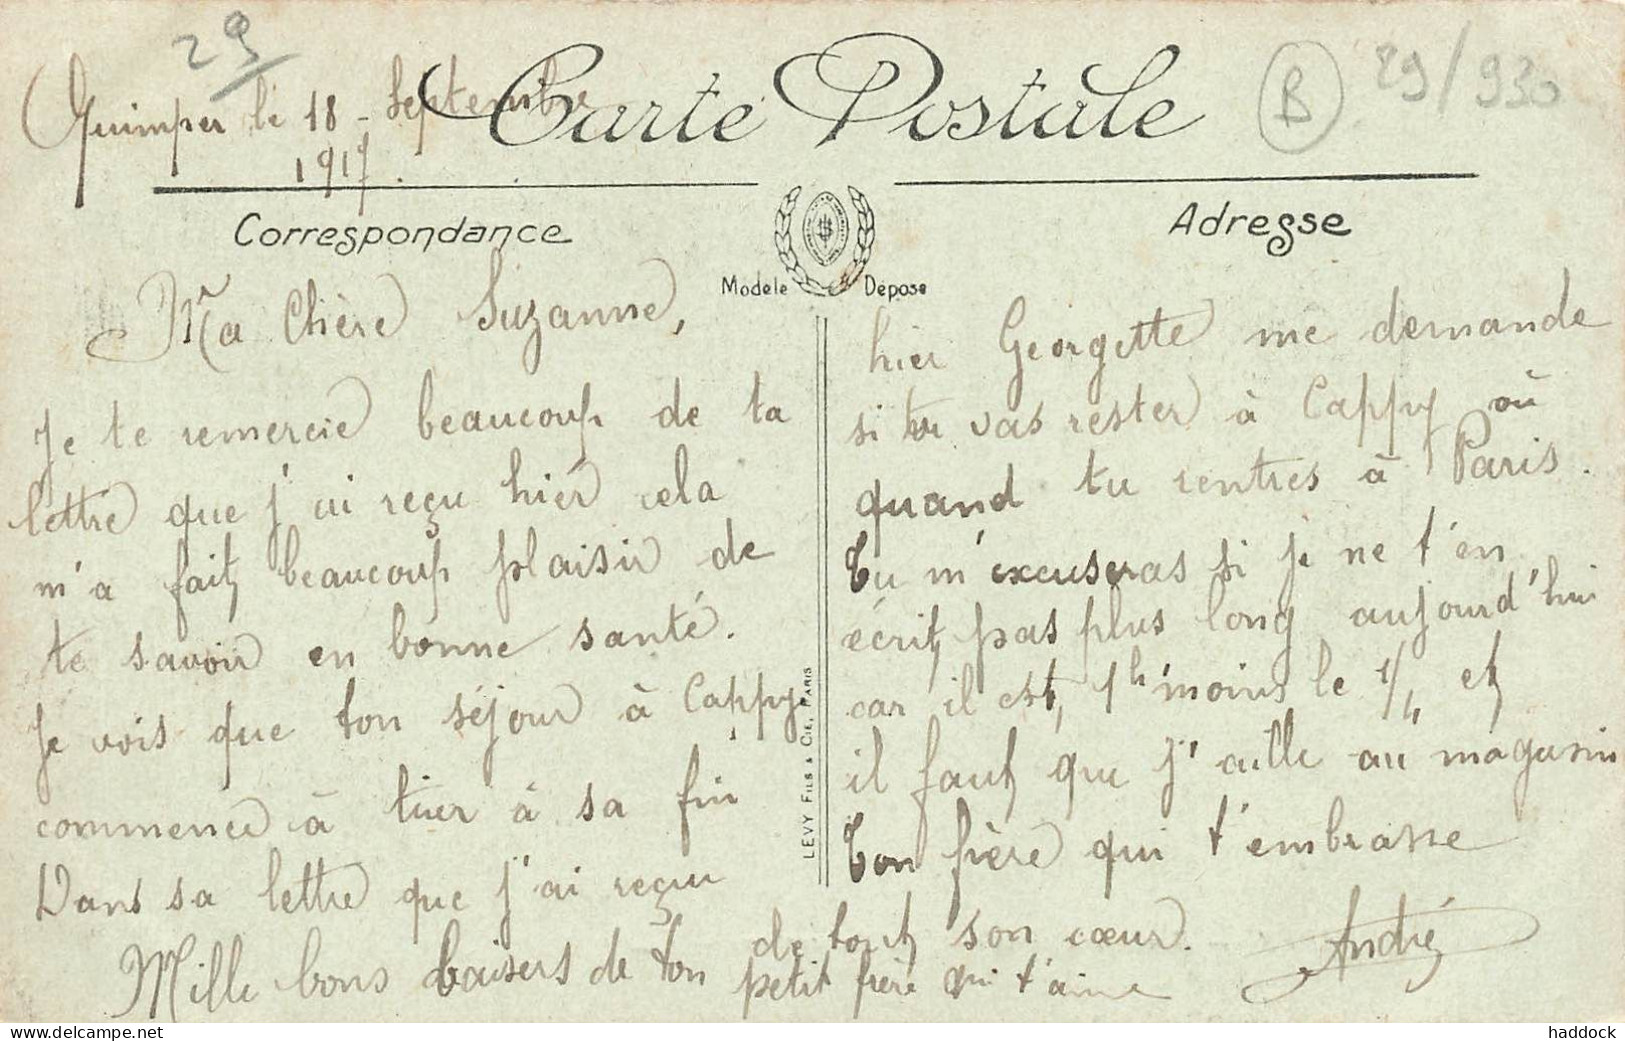 29
B
29/930
Carte Postale
Quimper le 18 - Septembre
1917.
Correspondance
Adresse
Modèle Déposé
Ma Chère Suzanne,
Je te remercie beaucoup de ta
lettre que j'ai reçu hier cela
m'a fait beaucoup plaisir de
te savoir en bonne santé.
Je vois que ton séjour à Cappy
commence à tirer à sa fin
Dans sa lettre que j'ai reçu
hier Georgette me demande
si tu vas rester à Cappy où
quand tu rentres à Paris.
Tu m'excuseras si je ne t'en
écrit pas plus long aujourd'hui
car il est, 1h moins le 1/4 et
il faut que j'aille au magasin
Ton frère qui t'embrasse
de tout son cœur. André
Mille bons baisers de ton petit frère qui t'aime
LEVY FILS & CIE, PARIS
delcampe.net
haddock